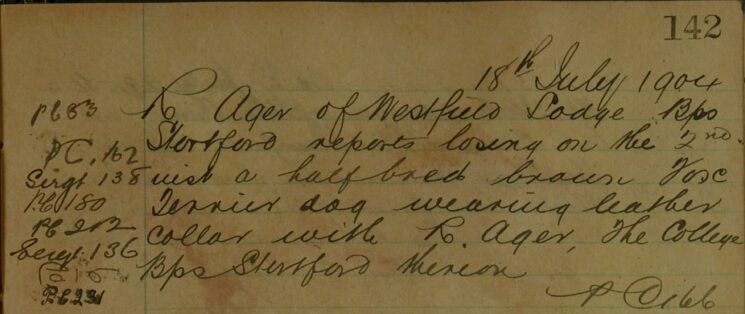 142
18th July 1904
PC 83 R Ager of Westfield Lodge Bps
Stortford reports losing on the 2nd
PC. 162
Sergt 138 inst a halfbred brown Fox
PC 180 Terrier dog wearing leather
PC 212 collar with R. Ager, The College
Sergt 136
Bps Stortford thereon
PC 231